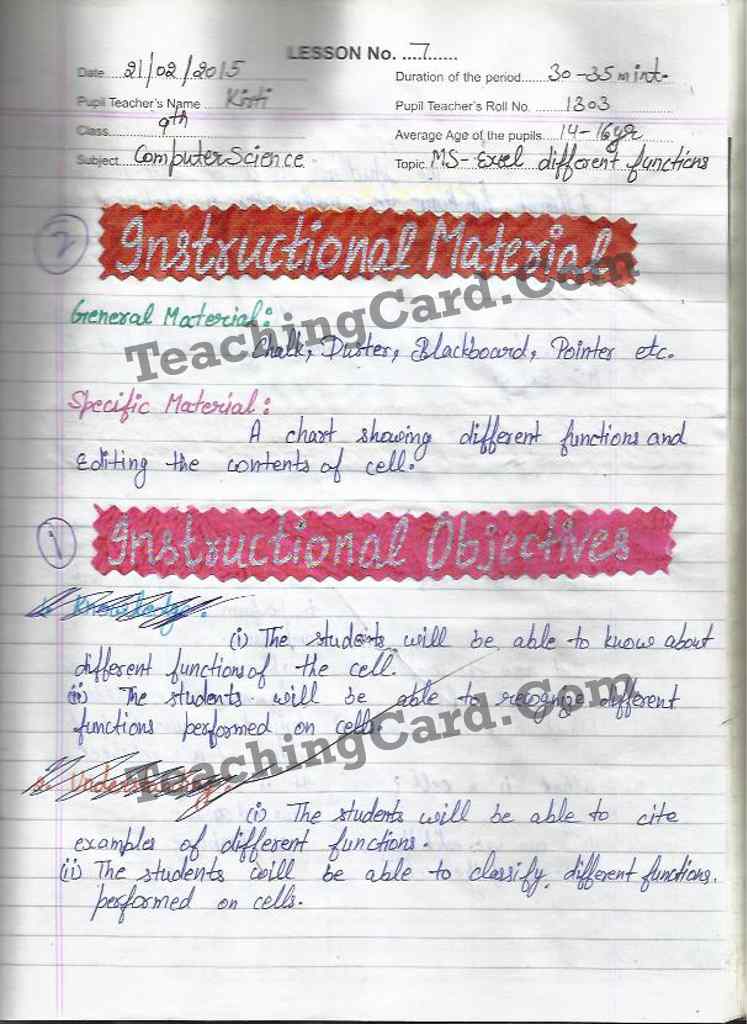 LESSON No. ....7......
Date 21/02/2015 Duration of the period 30-35 mint.
Pupil Teacher's Name Kirti Pupil Teacher's Roll No. 1303
Class 9th Average Age of the pupils 14-16yr
Subject Computer Science Topic MS-Excel different functions
2 Instructional Material
General Material:
Chalk, Duster, Blackboard, Pointer etc.
TeachingCard.Com
Specific Material:
A chart showing different functions and
Editing the contents of cell.
1 Instructional Objectives
Knowledge:
(i) The students will be able to know about
different functions of the cell.
(ii) The students will be able to recognize different
functions performed on cells.
TeachingCard.Com
2. Understanding:
(i) The students will be able to cite
examples of different functions.
(ii) The students will be able to classify different functions.
performed on cells.